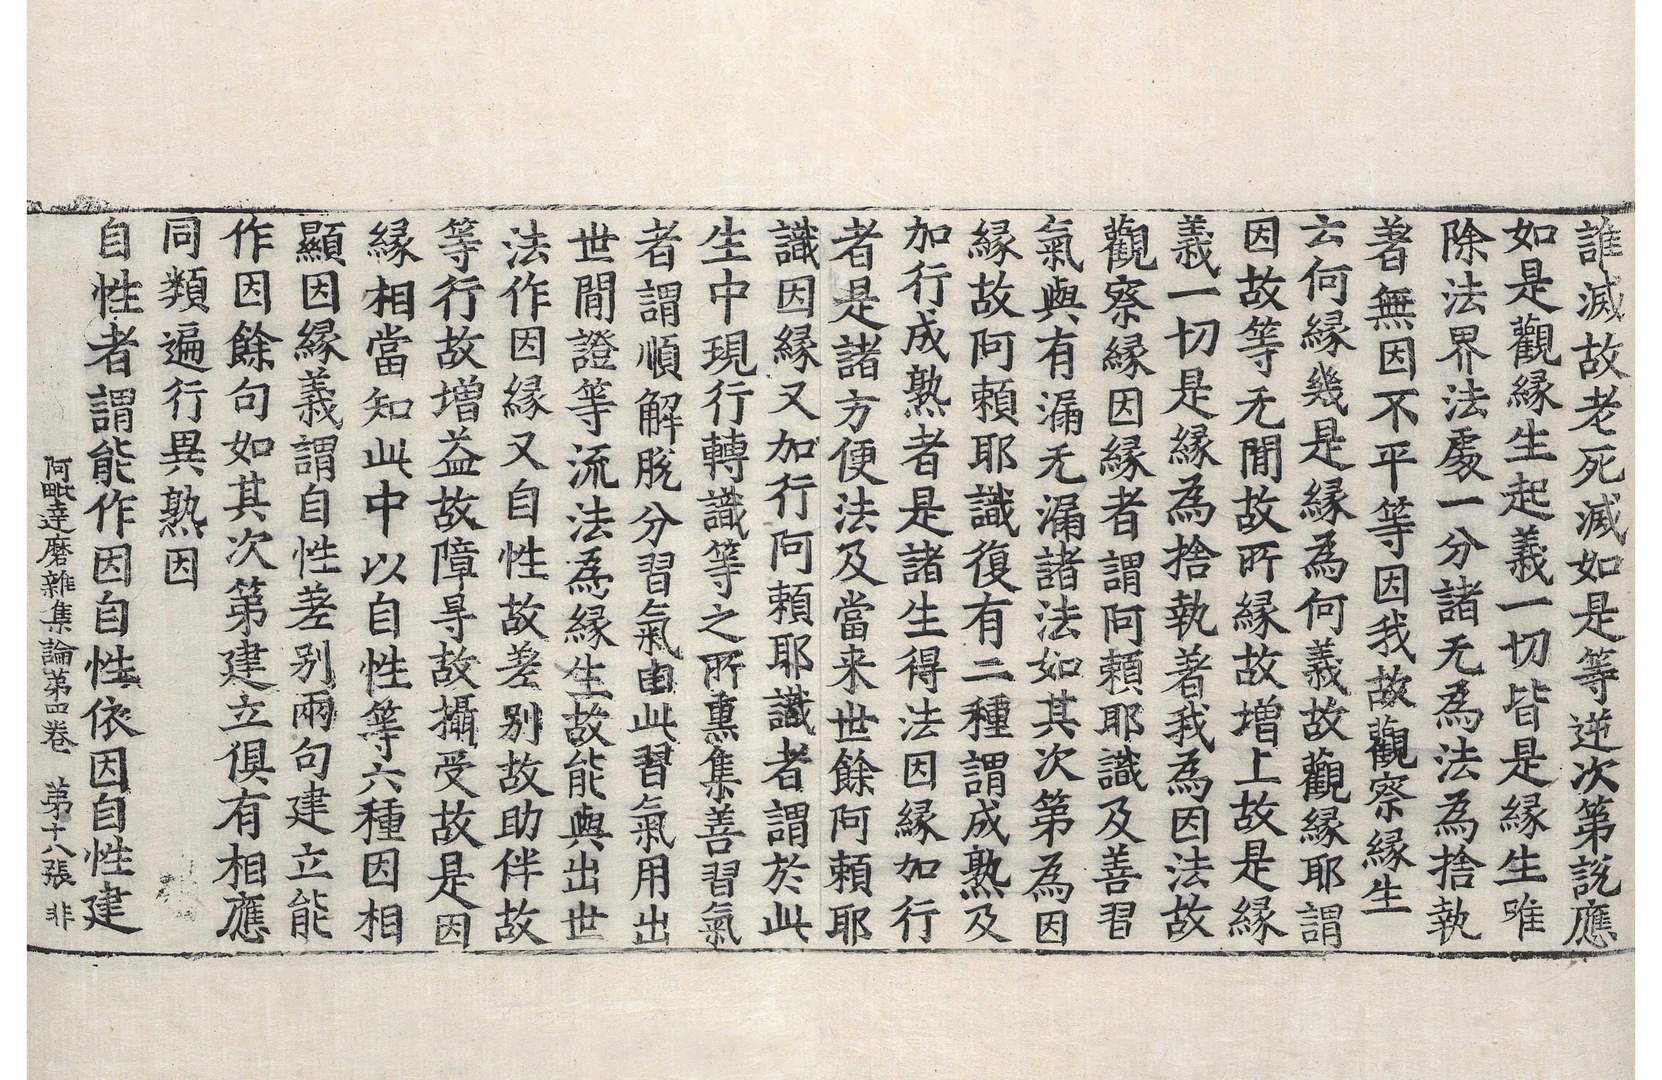 誰滅故老死滅如是等逆次第說應
如是觀縁生起義一切皆是縁生唯
除法界法處一分諸无為法為捨執
著無因不平等因我故觀察縁生
云何縁幾是縁為何義故觀縁耶謂
因故等无閒故所縁故增上故是縁
義一切是縁為捨執著我為因法故
觀察縁因縁者謂阿頼耶識及善習
氣與有漏无漏諸法如其次第為因
縁故阿頼耶識復有二種謂成熟及
加行成熟者是諸生得法因縁加行
者是諸方便法及當来世餘阿頼耶
識因縁又加行阿頼耶識者謂於此
生中現行轉識等之所熏集善習氣
者謂順解脫分習氣由此習氣用出
世閒證等流法為縁生故能與出世
法作因縁又自性故差别故助伴故
等行故增益故障㝵故攝受故是因
縁相當知此中以自性等六種因相
顯因縁義謂自性差别兩句建立能
作因餘句如其次第建立俱有相應
同類遍行異熟因
自性者謂能作因自性依因自性建
阿毗達磨雜集論第四卷 第十八張 非